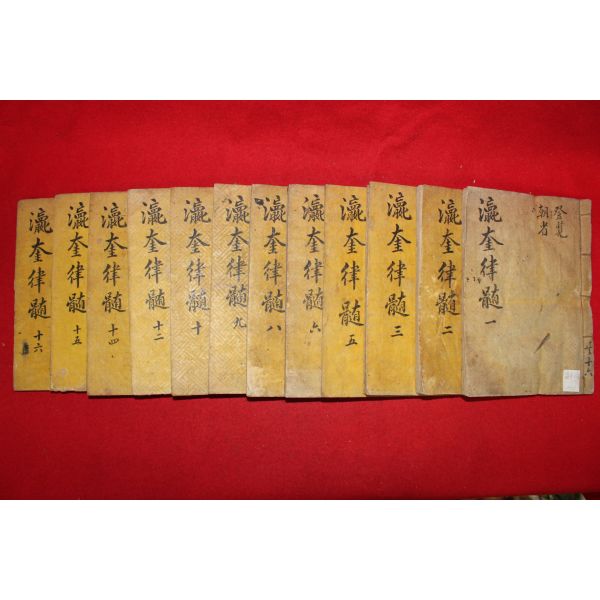 瀛奎律髓 一
登覽
朝省
共十六
瀛奎律髓 二
瀛奎律髓 三
瀛奎律髓 五
瀛奎律髓 六
瀛奎律髓 八
瀛奎律髓 九
瀛奎律髓 十
瀛奎律髓 十二
瀛奎律髓 十四
瀛奎律髓 十五
瀛奎律髓 十六